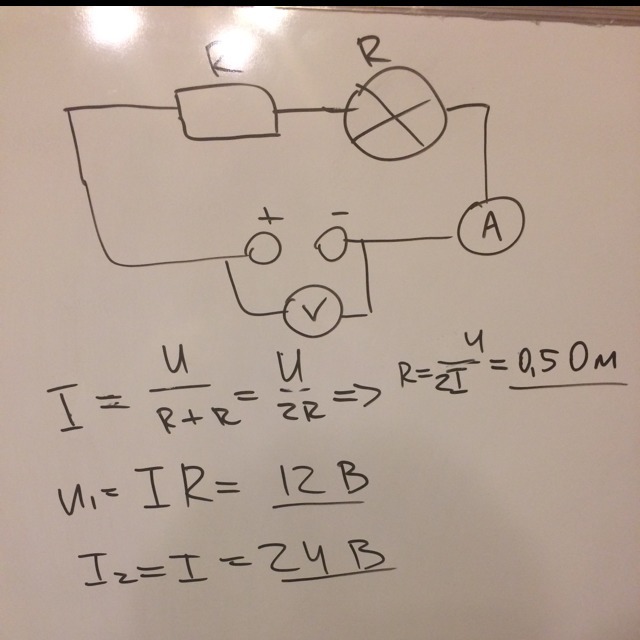 R R
+ -
A
V
I = U/(R+R) = U/2R => R = U/2I = 0,5 Ом
U₁ = I R = 12 В
I₂ = I = 24 В